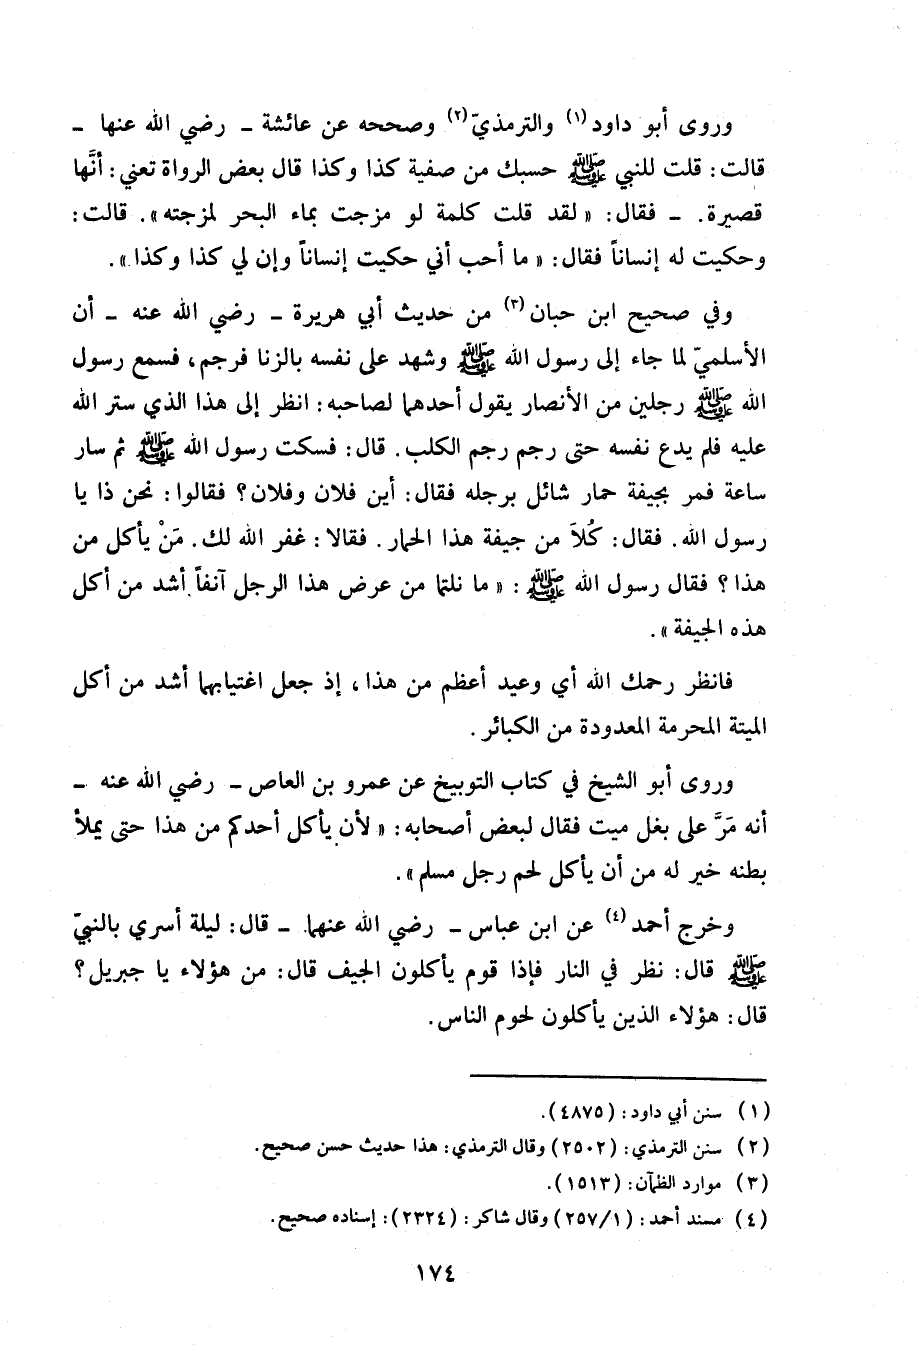 وروى أبو داود(١) والترمذيّ(٢) وصححه عن عائشة - رضي الله عنها -
قالت: قلت للنبي ﷺ حسبك من صفية كذا وكذا قال بعض الرواة تعني: أنَّها
قصيرة. - فقال: «لقد قلت كلمة لو مزجت بماء البحر لمزجته». قالت:
وحكيت له إنساناً فقال: «ما أحب أني حكيت إنساناً وإن لي كذا وكذا».
وفي صحيح ابن حبان(٣) من حديث أبي هريرة - رضي الله عنه - أن
الأسلميّ لما جاء إلى رسول الله ﷺ وشهد على نفسه بالزنا فرجم، فسمع رسول
الله ﷺ رجلين من الأنصار يقول أحدهما لصاحبه: انظر إلى هذا الذي ستر الله
عليه فلم يدع نفسه حتى رجم رجم الكلب. قال: فسكت رسول الله ﷺ ثم سار
ساعة فمر بجيفة حمار شائل برجله فقال: أين فلان وفلان؟ فقالوا: نحن ذا يا
رسول الله. فقال: كُلاَ من جيفة هذا الحمار. فقالا: غفر الله لك. مَنْ يأكل من
هذا؟ فقال رسول الله ﷺ: «ما نلتما من عرض هذا الرجل آنفاً أشد من أكل
هذه الجيفة».
فانظر رحمك الله أي وعيد أعظم من هذا، إذ جعل اغتيابهما أشد من أكل
الميتة المحرمة المعدودة من الكبائر.
وروى أبو الشيخ في كتاب التوبيخ عن عمرو بن العاص - رضي الله عنه -
أنه مَرَّ على بغل ميت فقال لبعض أصحابه: «لأن يأكل أحدكم من هذا حتى يملأ
بطنه خير له من أن يأكل لحم رجل مسلم».
وخرج أحمد(٤) عن ابن عباس - رضي الله عنهما - قال: ليلة أسري بالنبيّ
ﷺ قال: نظر في النار فإذا قوم يأكلون الجيف قال: من هؤلاء يا جبريل؟
قال: هؤلاء الذين يأكلون لحوم الناس.
(١) سنن أبي داود: (٤٨٧٥).
(٢) سنن الترمذي: (٢٥٠٢) وقال الترمذي: هذا حديث حسن صحيح.
(٣) موارد الظمآن: (١٥١٣).
(٤) مسند أحمد: (٢٥٧/١) وقال شاكر: (٢٣٢٤): إسناده صحيح.
١٧٤